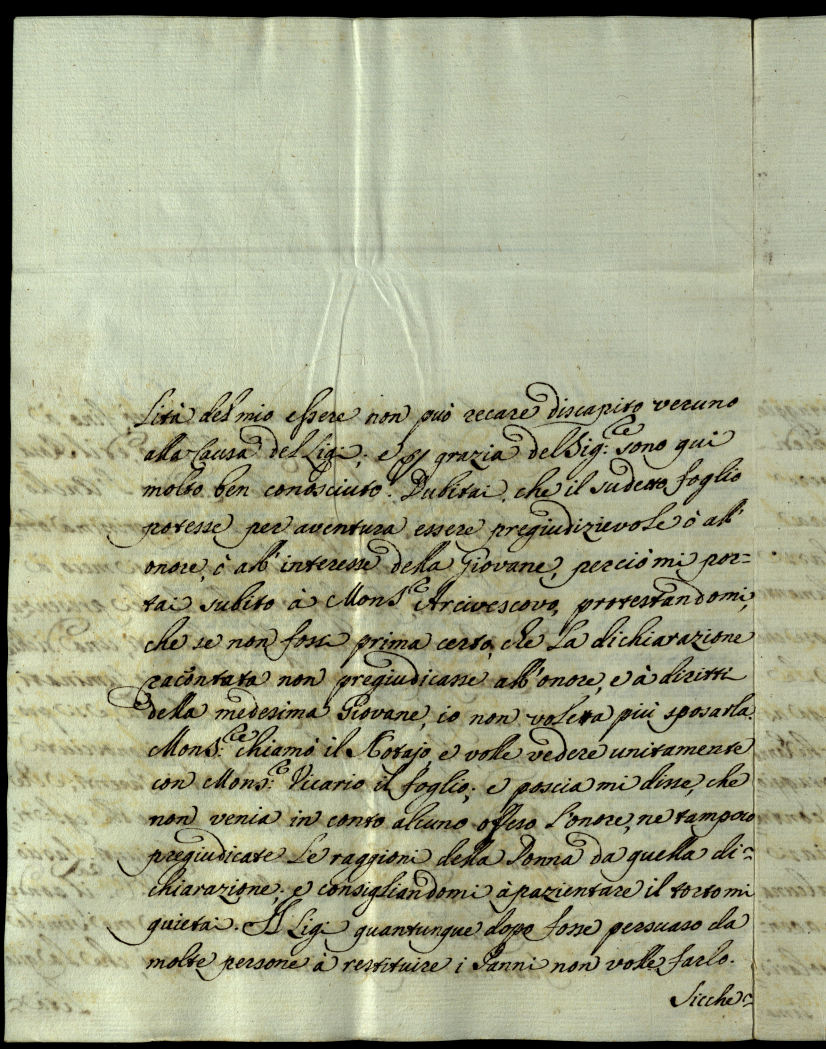 lità del mio essere non può recare discapito veruno
alla Causa del Ligi; e p grazia del Sig.re sono qui
molto ben conosciuto. Dubitai, che il sudetto foglio
potesse per aventura essere pregiudizievole ò all'
onore, ò all'interesse della Giovane, perciò mi por=
tai subito à Mons.re Arcivescovo, protestandomi,
che se non fossi prima certo, che la dichiarazione
racontata non pregiudicasse all'onore, e à diritti
della medesima Giovane, io non voleva più sposarla.
Mons.re chiamò il Notajo, e volle vedere unitamente
con Mons.re Vicario il foglio; e poscia mi disse, che
non venia in conto alcuno offeso l'onore, ne tampoco
pregiudicate le raggioni della Donna da quella di=
chiarazione; e consigliandomi à pazientare il torto mi
quietai. Il Ligi quantunque dopo fosse persuaso da
molte persone à restituire i Panni non volle farlo.
Sicche